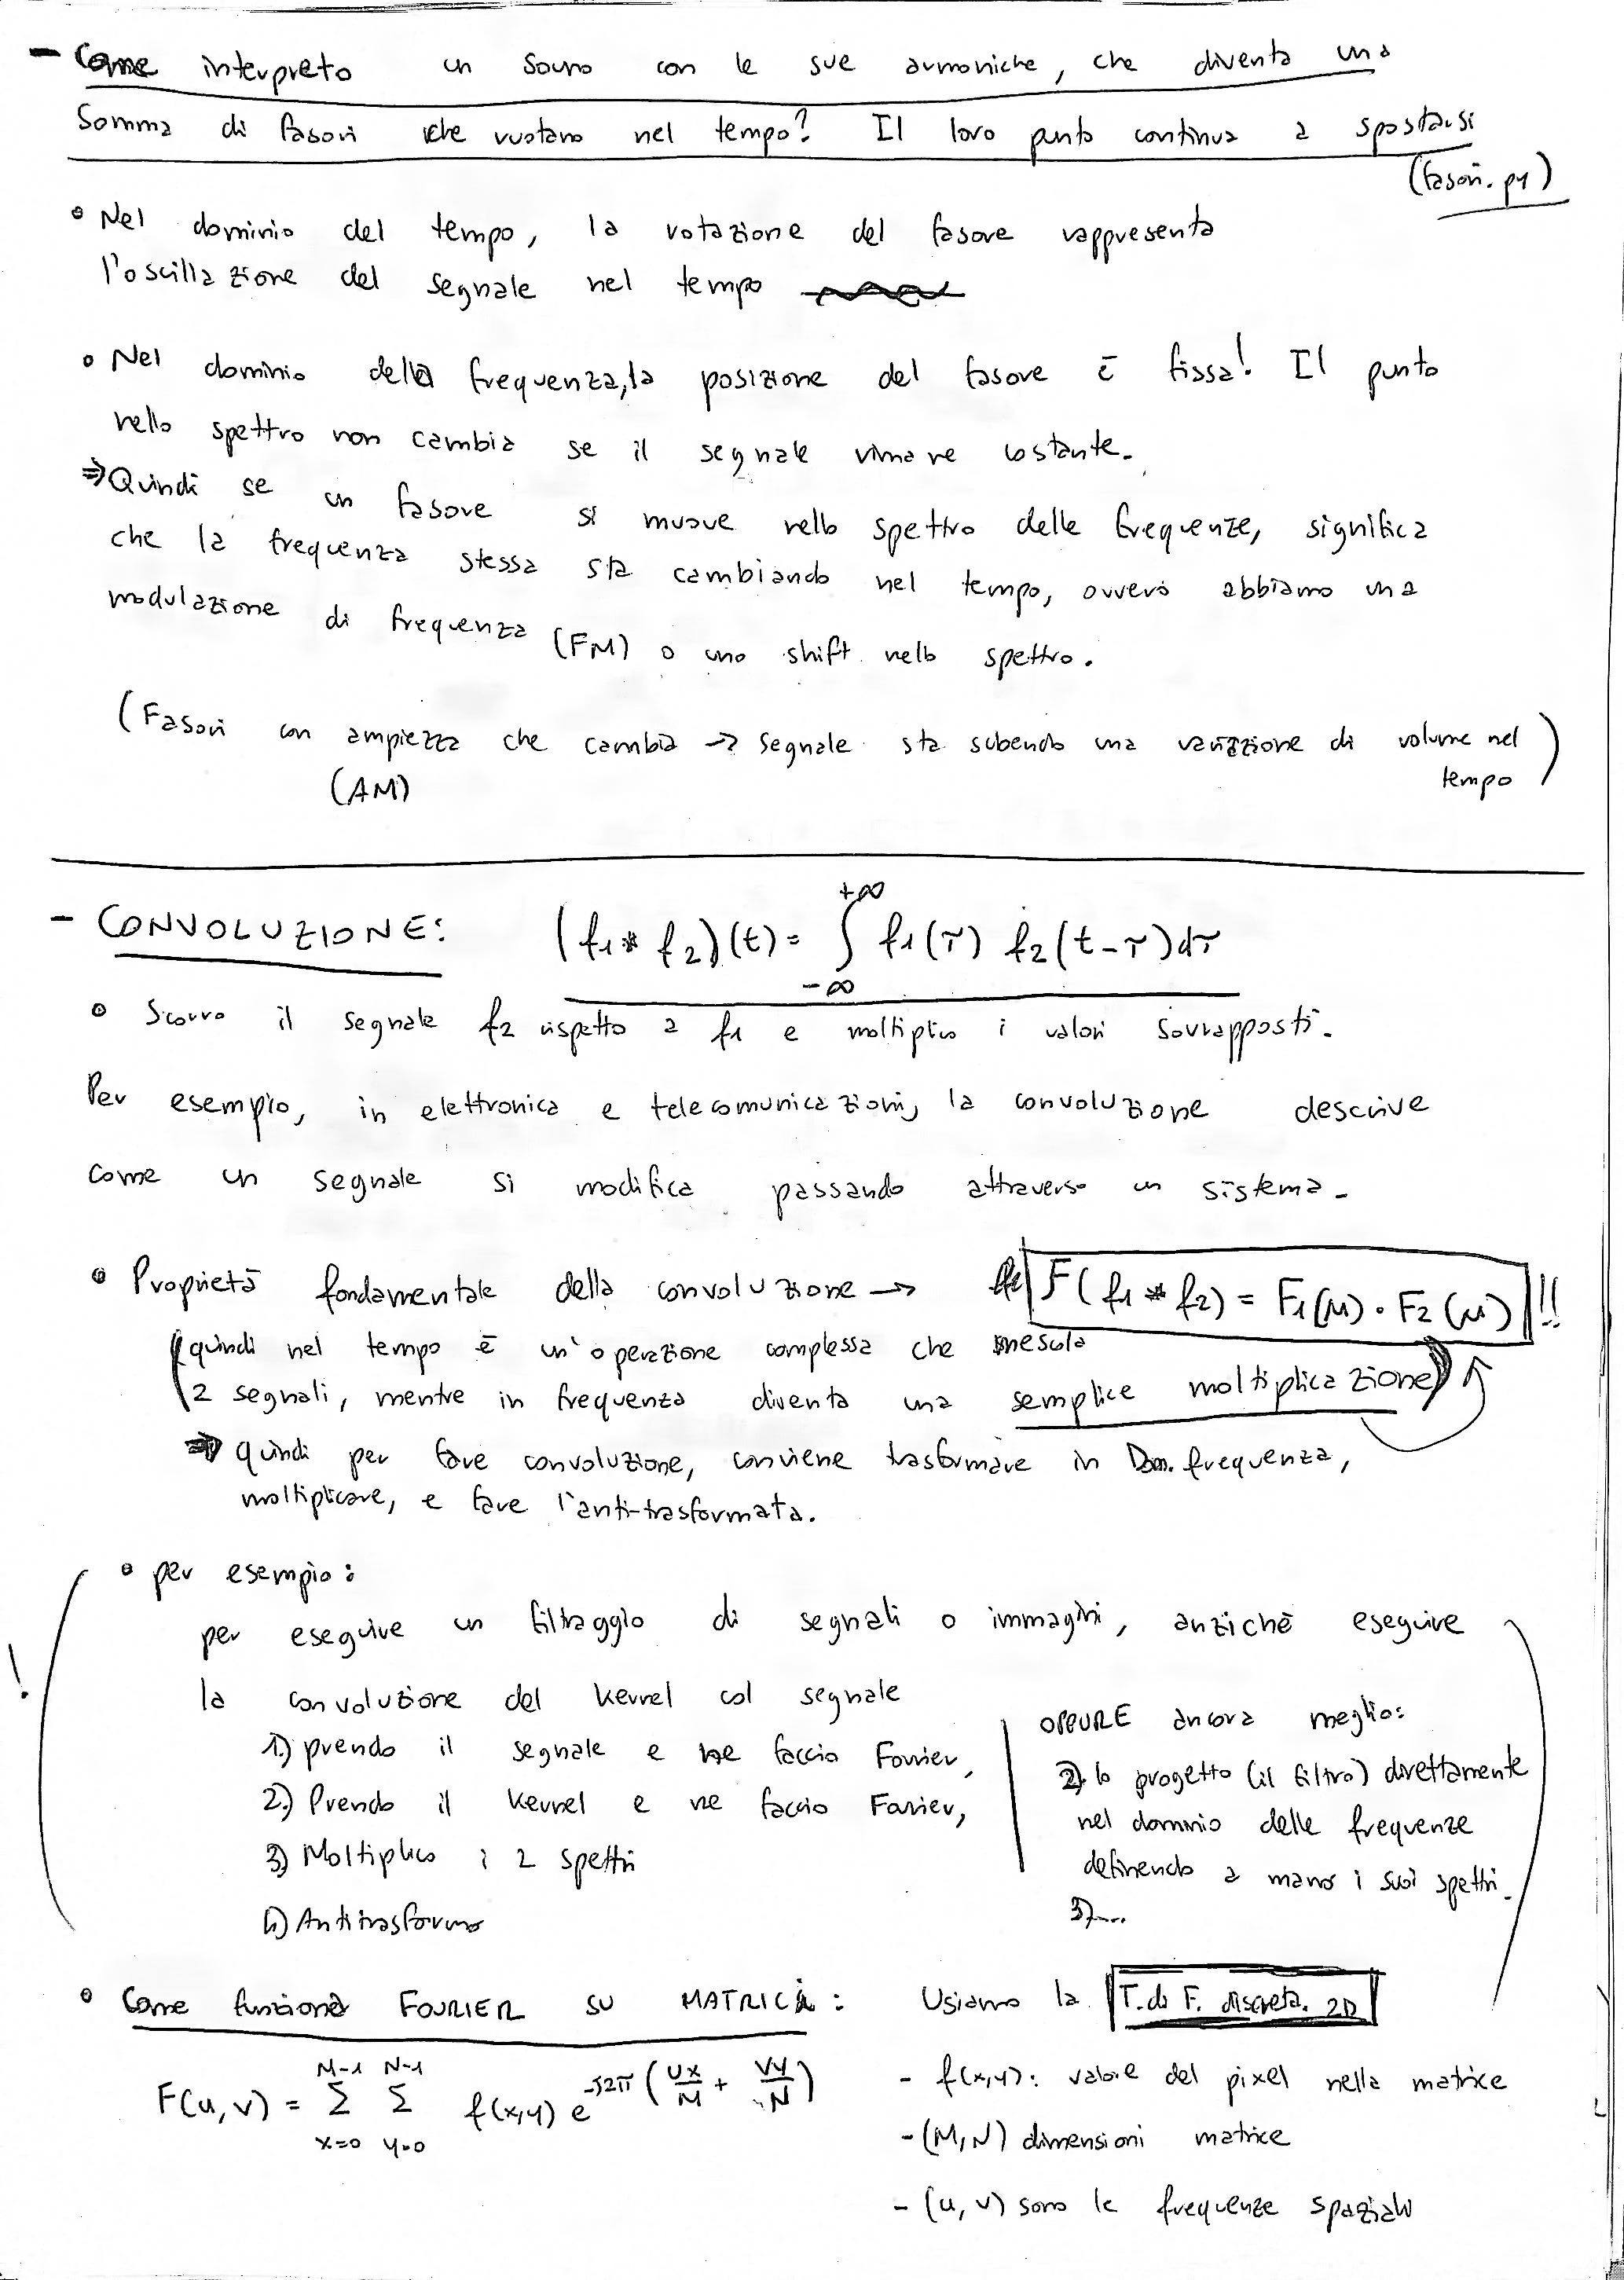 - Come interpreto un suono con le sue armoniche, che diventa una
Somma di fasori che ruotano nel tempo? Il loro punto continua a spostarsi
(fasori.py)
• Nel dominio del tempo, la rotazione del fasore rappresenta
l'oscillazione del segnale nel tempo
• Nel dominio della frequenza, la posizione del fasore è fissa! Il punto
nello spettro non cambia se il segnale rimane costante.
⇒ Quindi se un fasore si muove nello spettro delle frequenze, significa
che la frequenza stessa sta cambiando nel tempo, ovvero abbiamo una
modulazione di frequenza (FM) o uno shift nello spettro.
(Fasori con ampiezza che cambia → segnale sta subendo una variazione di volume nel tempo)
(AM)
- CONVOLUZIONE: (f1 * f2)(t) = ∫_{-∞}^{+∞} f1(τ) f2(t-τ)dτ
• Scorro il segnale f2 rispetto a f1 e moltiplico i valori sovrapposti.
Per esempio, in elettronica e telecomunicazioni, la convoluzione descrive
come un segnale si modifica passando attraverso un sistema.
• Proprietà fondamentale della convoluzione → F(f1 * f2) = F1(μ) · F2(μ) !!
(quindi nel tempo è un'operazione complessa che mescola
2 segnali, mentre in frequenza diventa una semplice moltiplicazione)
⇒ quindi per fare convoluzione, conviene trasformare in Dom. frequenza,
moltiplicare, e fare l'anti-trasformata.
• per esempio:
per eseguire un filtraggio di segnali o immagini, anzichè eseguire
la convoluzione del kernel col segnale
1) prendo il segnale e ne faccio Fourier,
2) Prendo il kernel e ne faccio Fourier,
3) Moltiplico i 2 spettri
4) Antitrasformo
!
OPPURE ancora meglio:
2) lo progetto (il filtro) direttamente
nel dominio delle frequenze
definendo a mano i suoi spettri.
3)....
• Come funziona FOURIER SU MATRICI: Usiamo la T. di F. discreta 2D
F(u,v) = Σ_{x=0}^{M-1} Σ_{y=0}^{N-1} f(x,y) e^{-j2π(ux/M + vy/N)}
- f(x,y): valore del pixel nella matrice
- (M,N) dimensioni matrice
- (u,v) sono le frequenze spaziali